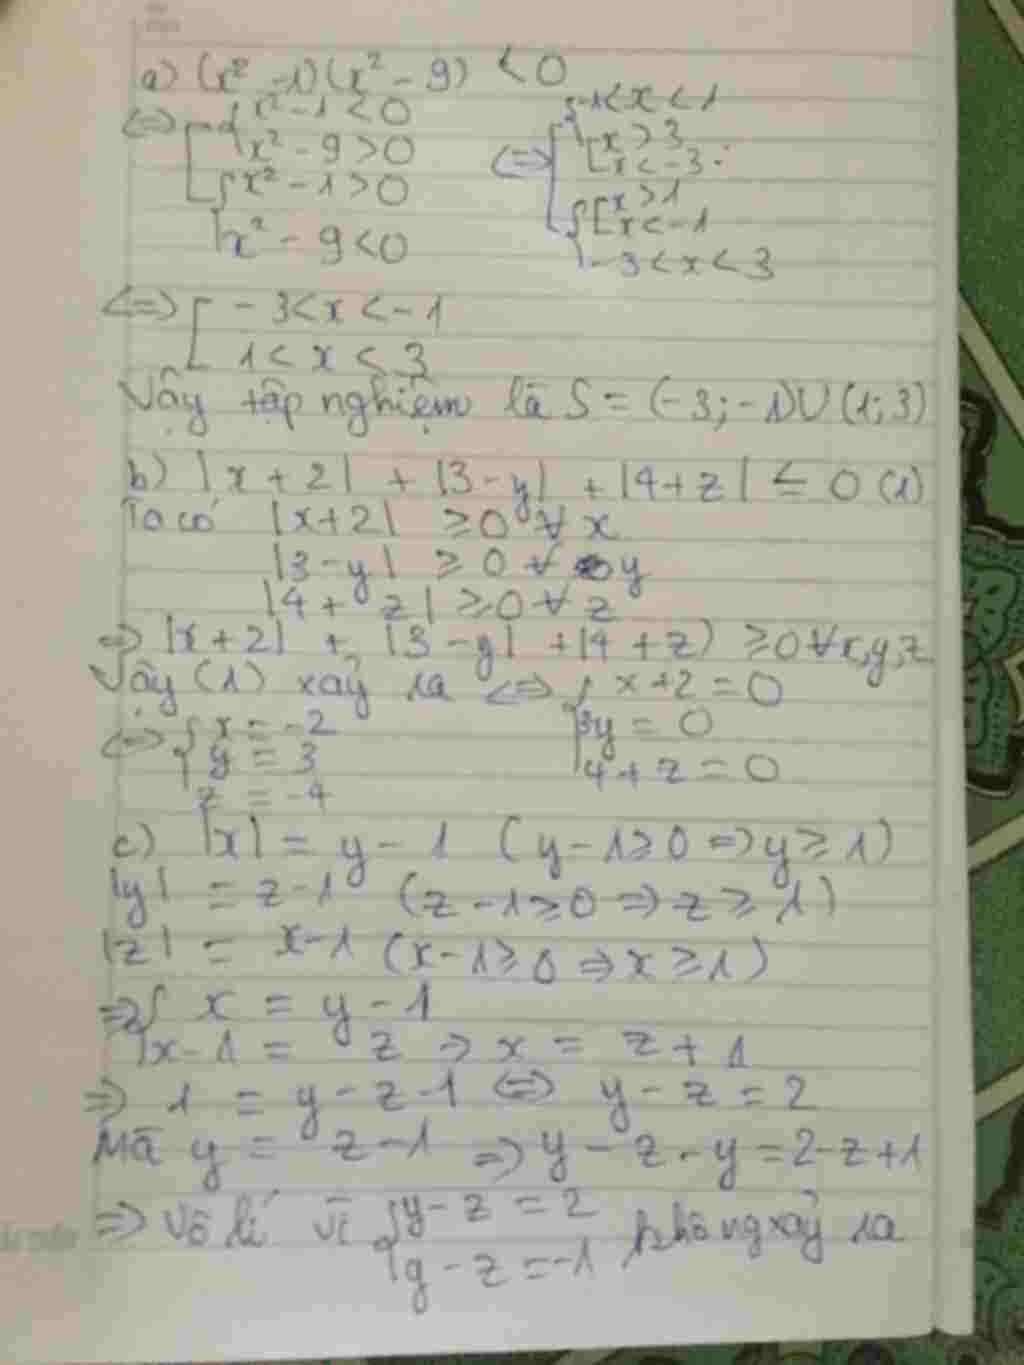 a) (x² - 1)(x² - 9) < 0
<=> [ { x² - 1 < 0 <=> [ { -1 < x < 1
x² - 9 > 0 [ x > 3
x < -3
{ x² - 1 > 0 { [ x > 1
x < -1
x² - 9 < 0 -3 < x < 3
<=> [ -3 < x < -1
1 < x < 3
Vậy tập nghiệm là S = (-3; -1) U (1; 3)
b) |x + 2| + |3 - y| + |4 + z| ≤ 0 (1)
Ta có |x + 2| ≥ 0 ∀ x
|3 - y| ≥ 0 ∀ y
|4 + z| ≥ 0 ∀ z
=> |x + 2| + |3 - y| + |4 + z) ≥ 0 ∀ x, y, z
Vậy (1) xảy ra <=> { x + 2 = 0
3y = 0
4 + z = 0
<=> { x = -2
y = 3
z = -4
c) |x| = y - 1 (y - 1 ≥ 0 => y ≥ 1)
|y| = z - 1 (z - 1 ≥ 0 => z ≥ 1)
|z| = x - 1 (x - 1 ≥ 0 => x ≥ 1)
=> { x = y - 1
x - 1 = z => x = z + 1
=> 1 = y - z - 1 <=> y - z = 2
Mà y = z - 1 => y - z - y = 2 - z + 1
=> Vô lí vì { y - z = 2
y - z = -1 không xảy ra